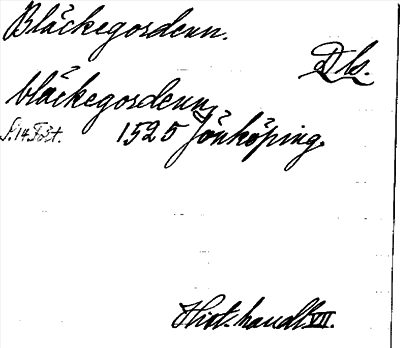 Bläckegordenn.
Ds.
bläckegordenn,
S. 14 Tbt. 1525 Jönköping.
Hist. handl. VII.